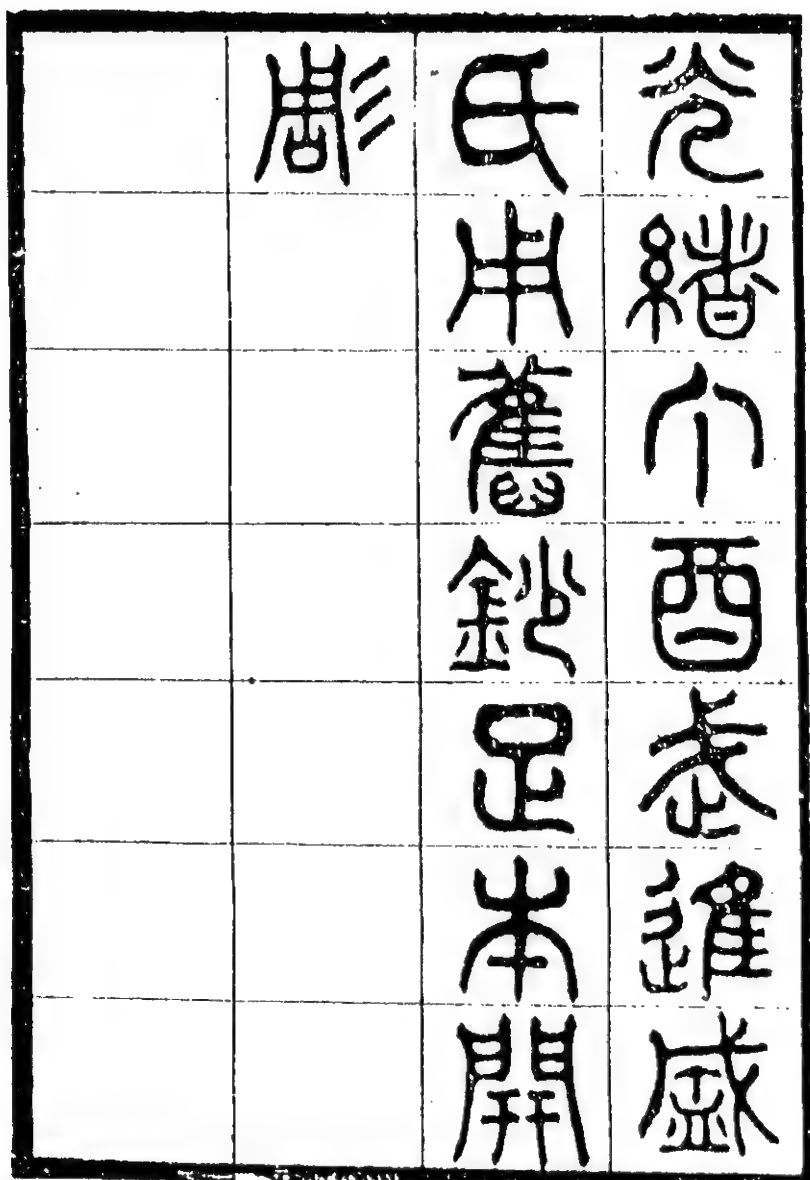 光緒丁酉武進盛
氏用舊鈔足本開
彫